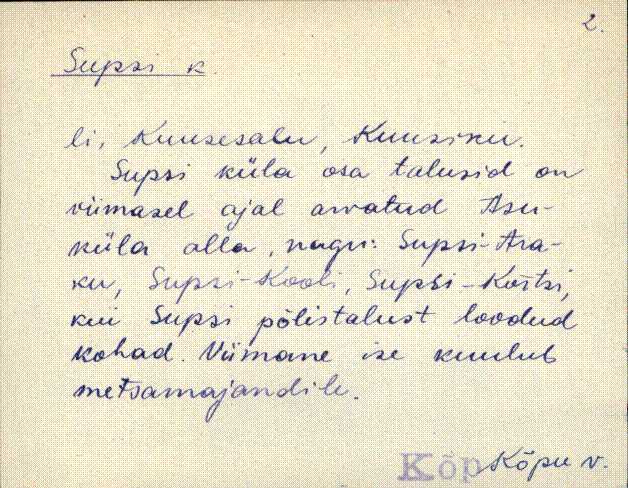 2.
Supsi k.
li, Kuusesalu, Kuusiku.
Supsi küla osa talusid on
viimasel ajal arvatud Asu-
küla alla, nagu: Supsi-Ara-
ku, Supsi-Kooli, Supsi-Kõrtsi,
kui Supsi põlistalust loodud
kohad. Viimane ise kuulub
metsamajandile.
Kõp Kõpu v.